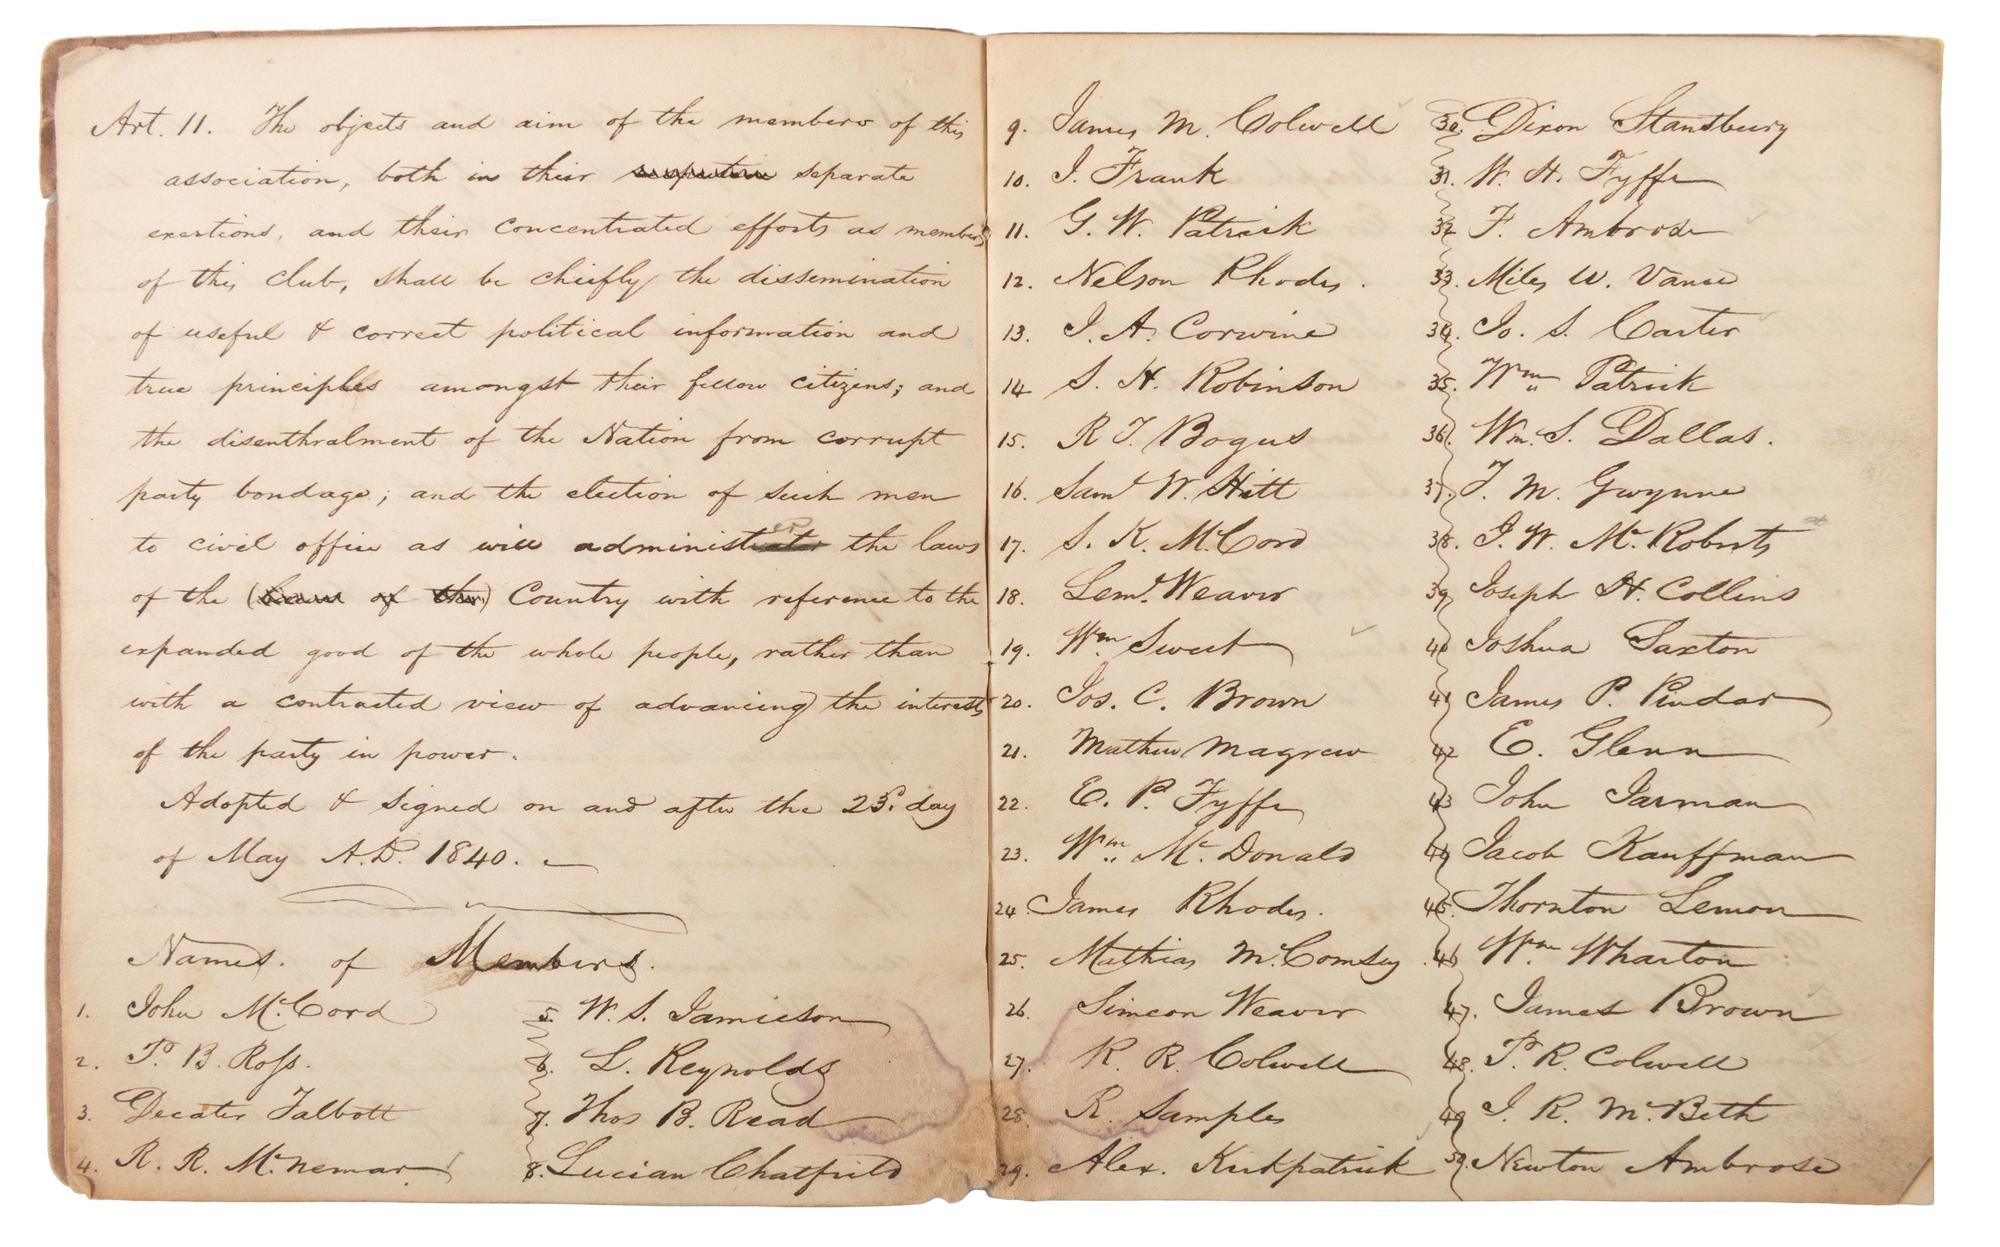 Art. 11. The objects and aim of the members of this
association, both in their separate
exertions, and their concentrated efforts as members
of this club, shall be chiefly the dissemination
of useful & correct political information and
true principles amongst their fellow citizens; and
the disenthralment of the Nation from corrupt
party bondage; and the election of such men
to civil office as will administer the laws
of the (Laws of their) Country with reference to the
expanded good of the whole people, rather than
with a contracted view of advancing the interests
of the party in power.
Adopted & signed on and after the 23d. day
of May A.D. 1840. —
Names. of Members.
1. John McCord
2. P. B. Ross.
3. Decater Talbott
4. R. R. McNemar
5. W. S. Jamieson
6. L. Reynolds
7. Thos B. Read
8. Lucian Chatfield
9. James M. Colwell
10. J. Frank
11. G. W. Patrick
12. Nelson Rhodes.
13. J. A. Corwine
14. S. H. Robinson
15. R T. Bogus
16. Saml W. Hitt
17. S. K. McCord
18. Leml. Weaver
19. Wm Sweet
20. Jos. C. Brown
21. Mathew Magrew
22. E. P. Fyffe
23. Wm McDonald
24. James Rhodes.
25. Mathias McComsey
26. Simeon Weaver
27. R. R. Colwell
28. R. Samples
29. Alex. Kirkpatrick
30. Dixon Stansbury
31. W. H. Fyffe
32. F. Ambrose
33. Miles W. Vance
34. Jo. S. Carter
35. Wm Patrick
36. Wm. S. Dallas.
37. T. M. Gwynne
38. J. W. McRoberts
39. Joseph H. Collins
40 Joshua Saxton
41 James P. Pindar
42 E. Glenn
43 John Jarman
44 Jacob Kauffman
45. Thornton Lemon
46 Wm Wharton
47. James Brown
48. P. R. Colwell
49 J. R. McBeth
50. Newton Ambrose